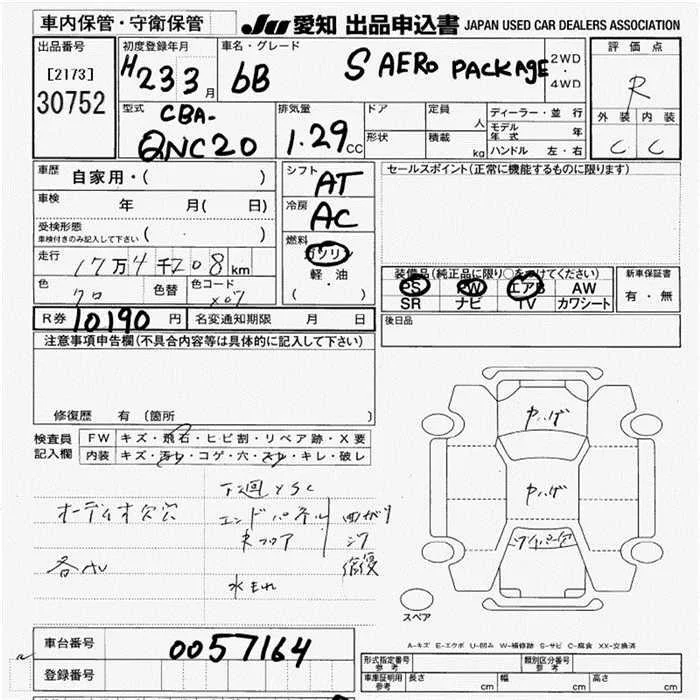 車内保管・守衛保管
JU 愛知 出品申込書 JAPAN USED CAR DEALERS ASSOCIATION
出品番号
[2173]
30752
初度登録年月
H23 3月
車名・グレード
bB S AERO PACKAGE
2WD
・
4WD
評価点
R
外装 内装
C C
型式
CBA-
QNC20
排気量
1.29 CC
ドア
形状
定員 人
積載 kg
ディーラー・並行
モデル年式 年
ハンドル 左・右
車歴 自家用・( )
車検 年 月( 日)
受検形態
車検付きのみ記入して下さい ( )
走行 17万4千208 km
色 クロ 色替 色コード X07
シフト AT
冷房 AC
燃料
ガソリン
軽・油
( )
セールスポイント(正常に機能するものに限ります)
装備品(純正品に限り○をつけてください)
PS PW エアB AW
SR ナビ TV カワシート
新車保証書
有・無
R券 10190 円 名変通知期限 月 日
後日品
注意事項申告欄(不具合内容等は具体的に記入して下さい)
修復歴 有 〔箇所
検査員記入欄
FW キズ・飛石・ヒビ割・リペア跡・X要
内装 キズ・汚れ・コゲ・穴・スレ・キレ・破レ
下廻
オーディオ欠穴
エンドパネル 曲がり
フロア
修復
水もれ
スペア
A-キズ E-エクボ U-凹み W-補修跡 S-サビ C-腐食 XX-交換済
車台番号 0057164
登録番号
形式指定番号参考 類別区分番号参考
車庫証明用参考 長さ cm 幅 cm 高さ cm